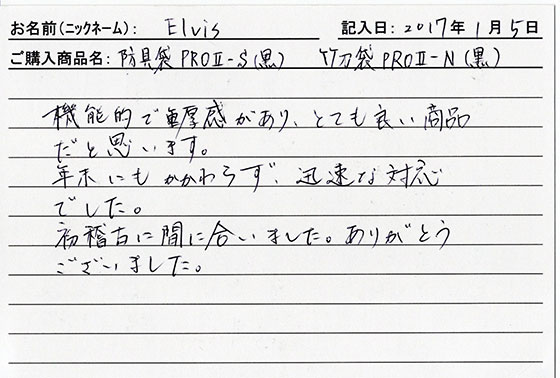 お名前(ニックネーム): Elvis 記入日: 2017年1月5日
ご購入商品名: 防具袋PROⅡ-S(黒) 竹刀袋PROⅡ-N(黒)
機能的で重厚感があり、とても良い商品
だと思います。
年末にもかかわらず、迅速な対応
でした。
初稽古に間に合いました。ありがとう
ございました。